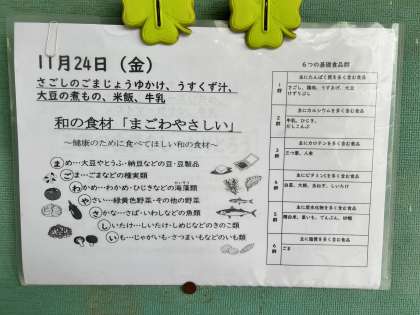 11月24日（金）
さごしのごまじょうゆかけ、うすくず汁、
大豆の煮もの、米飯、牛乳
和の食材「まごわやさしい」
～健康のために食べてほしい和の食材～
ま め…大豆やとうふ・納豆などの豆・豆製品
ご ま…ごまなどの種実類
わ かめ…わかめ・ひじきなどの海藻類
や さい…緑黄色野菜・その他の野菜
さ かな…さば・いわしなどの魚類
し いたけ…しいたけ・しめじなどのきのこ類
い も…じゃがいも・さつまいもなどのいも類
６つの基礎食品群
1群
主にたんぱく質を多く含む食品
さごし、鶏肉、うすあげ、大豆
けずりぶし
2群
主にカルシウムを多く含む食品
牛乳、ひじき、
だしこんぶ
3群
主にカロテンを多く含む食品
三つ葉、人参
4群
主にビタミンCを多く含む食品
白菜、大根、玉ねぎ、しいたけ
5群
主に炭水化物を多く含む食品
精白米、里いも、でんぷん、砂糖
6群
主に脂質を多く含む食品
ごま